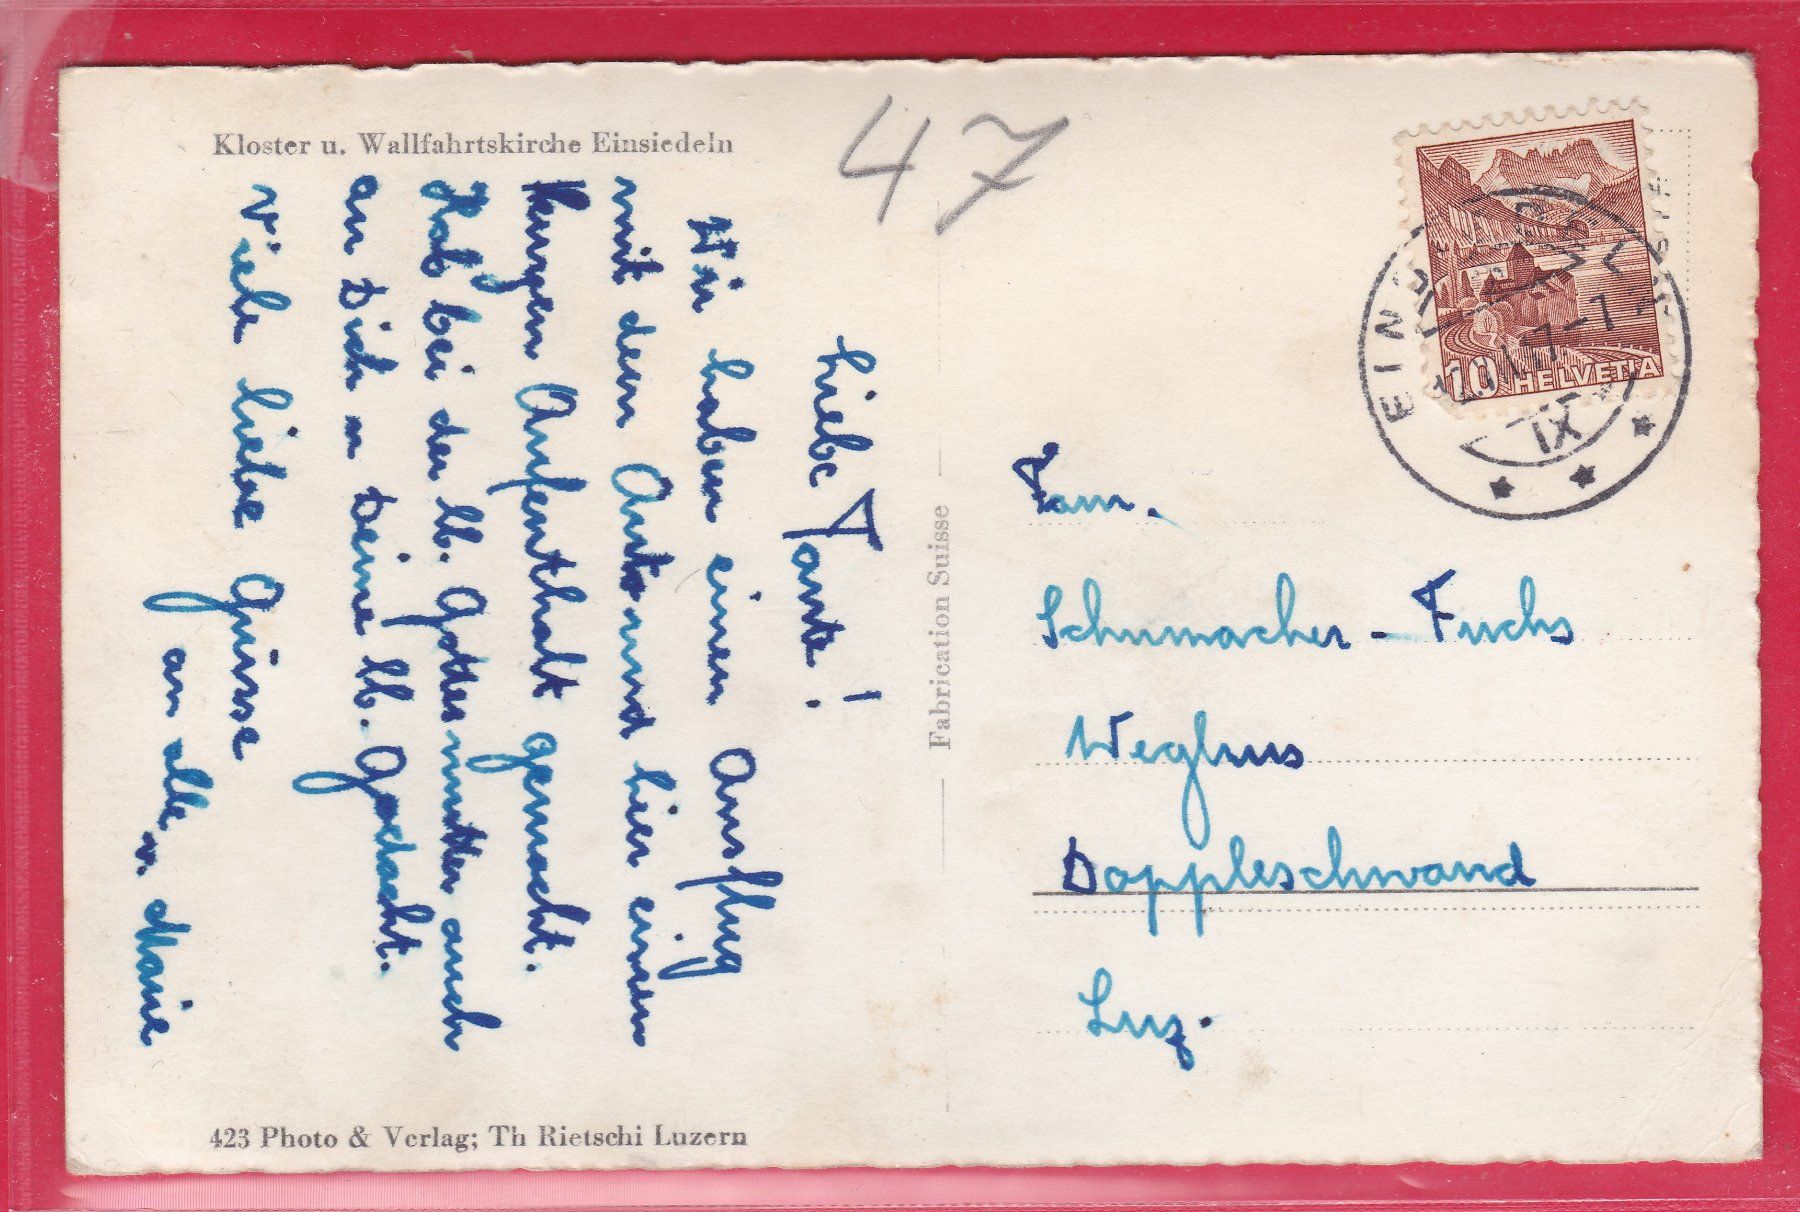 Kloster u. Wallfahrtskirche Einsiedeln
47
Liebe Tante!
Wir haben einen Ausflug
mit dem Auto und hier einen
kurzen Aufenthalt gemacht.
Hab bei der lb. Gottesmutter auch
an Dich u Deine lb. Gedacht.
Viele liebe Grüsse
an alle v. Marie
Fabrication Suisse
423 Photo & Verlag; Th Rietschi Luzern
10 HELVETIA
EINSIEDELN
IX
Fam.
Schumacher - Fuchs
Weghus
Doppleschwand
Luz.